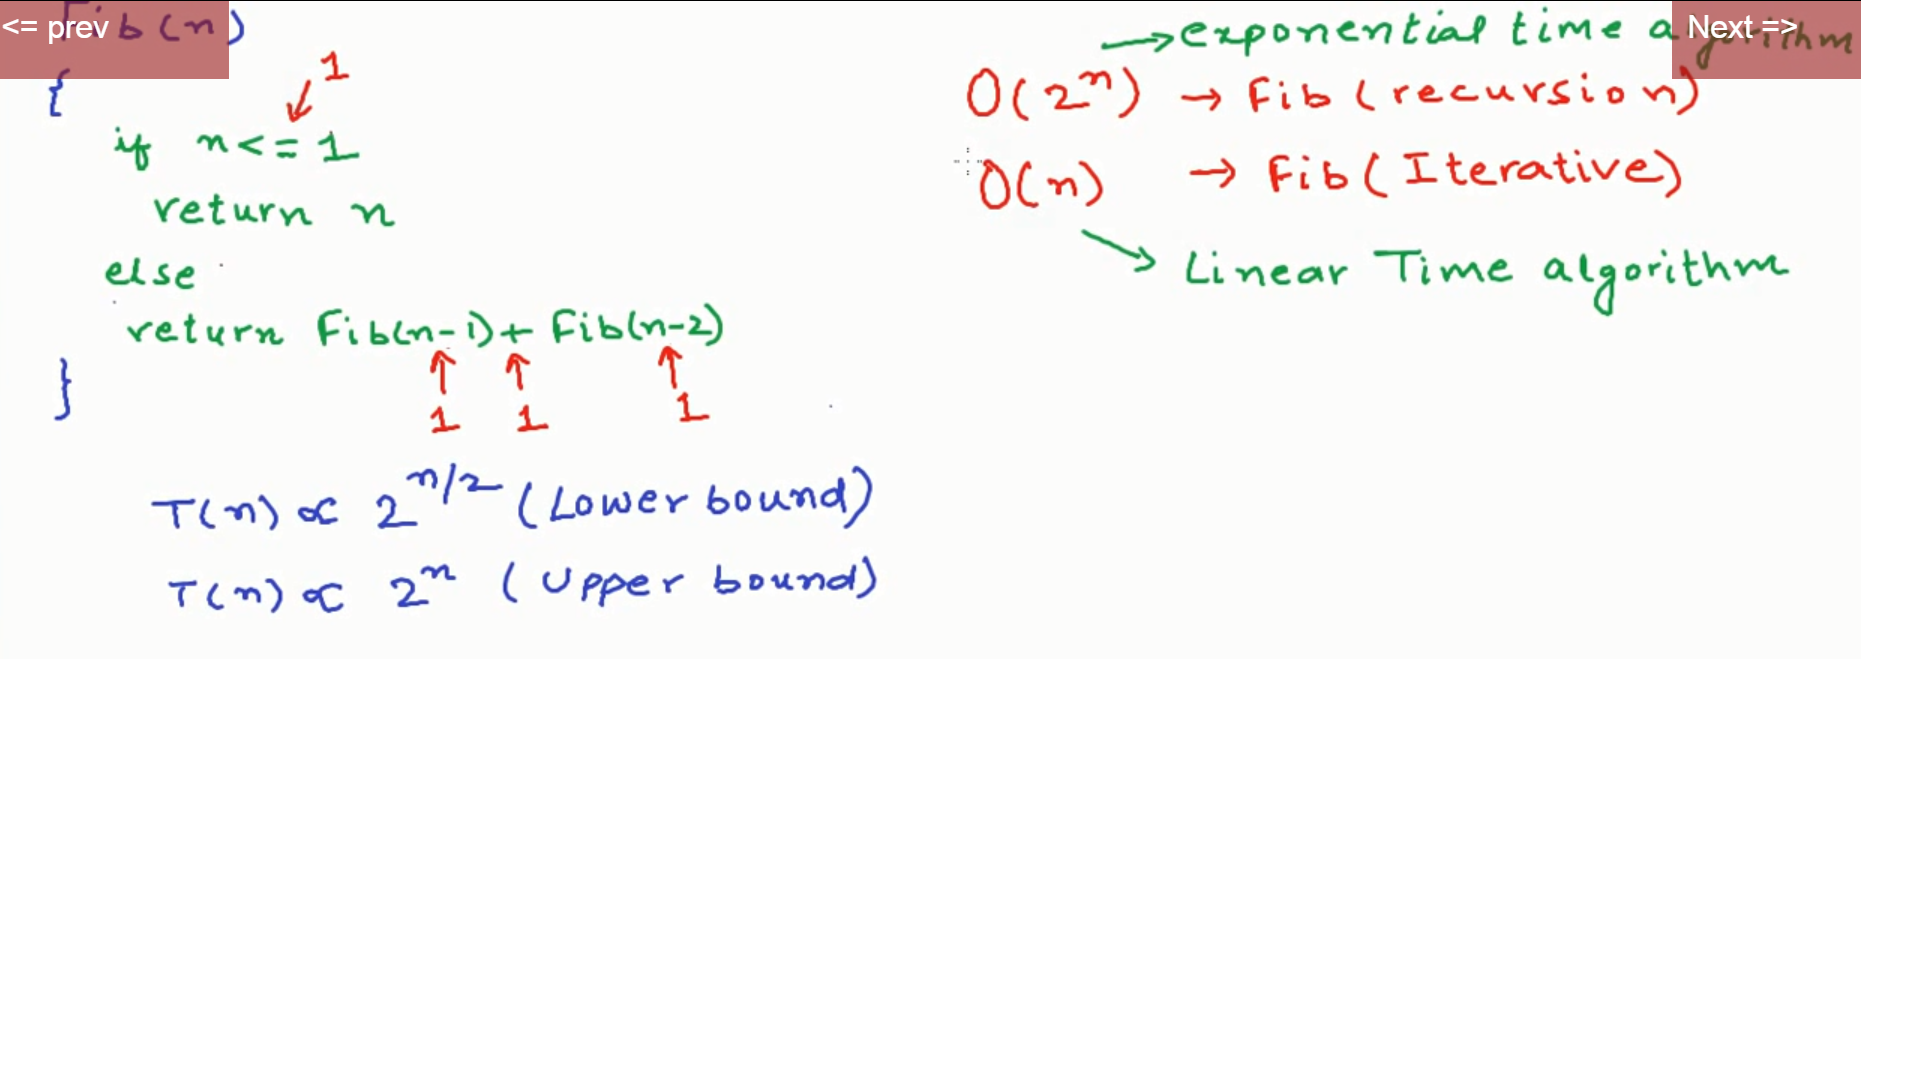 <= prev
Fib(n)
{
1
if n<=1
return n
else
return Fib(n-1)+Fib(n-2)
1 1 1
}
T(n) ∝ 2^n/2 (Lower bound)
T(n) ∝ 2^n (Upper bound)
Next =>
→ exponential time algorithm
O(2^n) → Fib(recursion)
O(n) → Fib(Iterative)
→ Linear Time algorithm